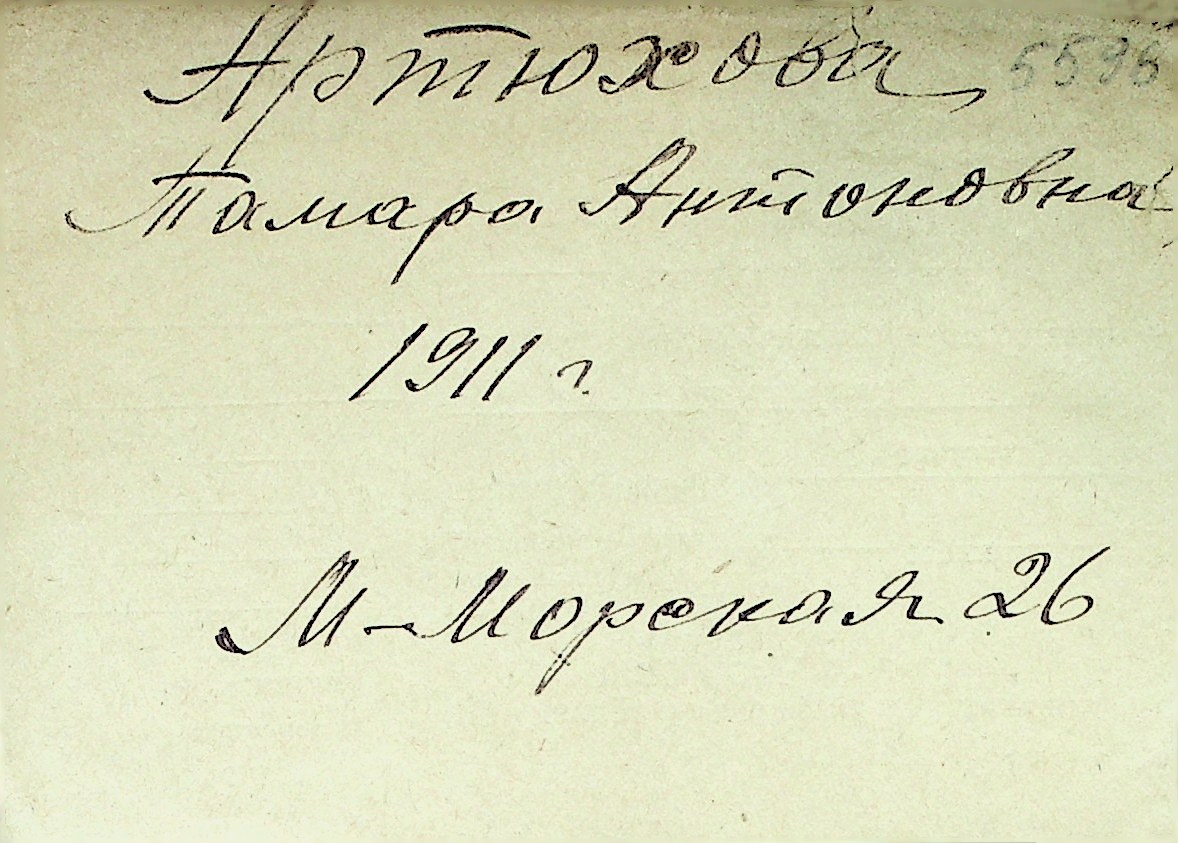 Артюхова 5595
Тамара Антоновна
1911 г.
М-Морская 26